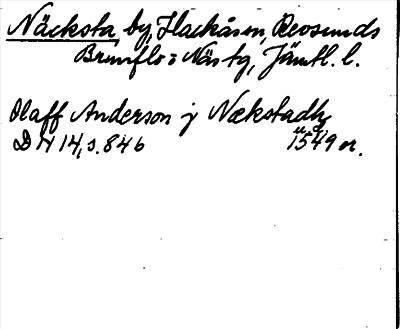 Näcksta, by, Hackåsen, Revsunds
Brunflo o Näs tg, Jämtl. l.
Olaff Anderson j Nækstadh
u.å.
DN 14, s. 846 1549 or.